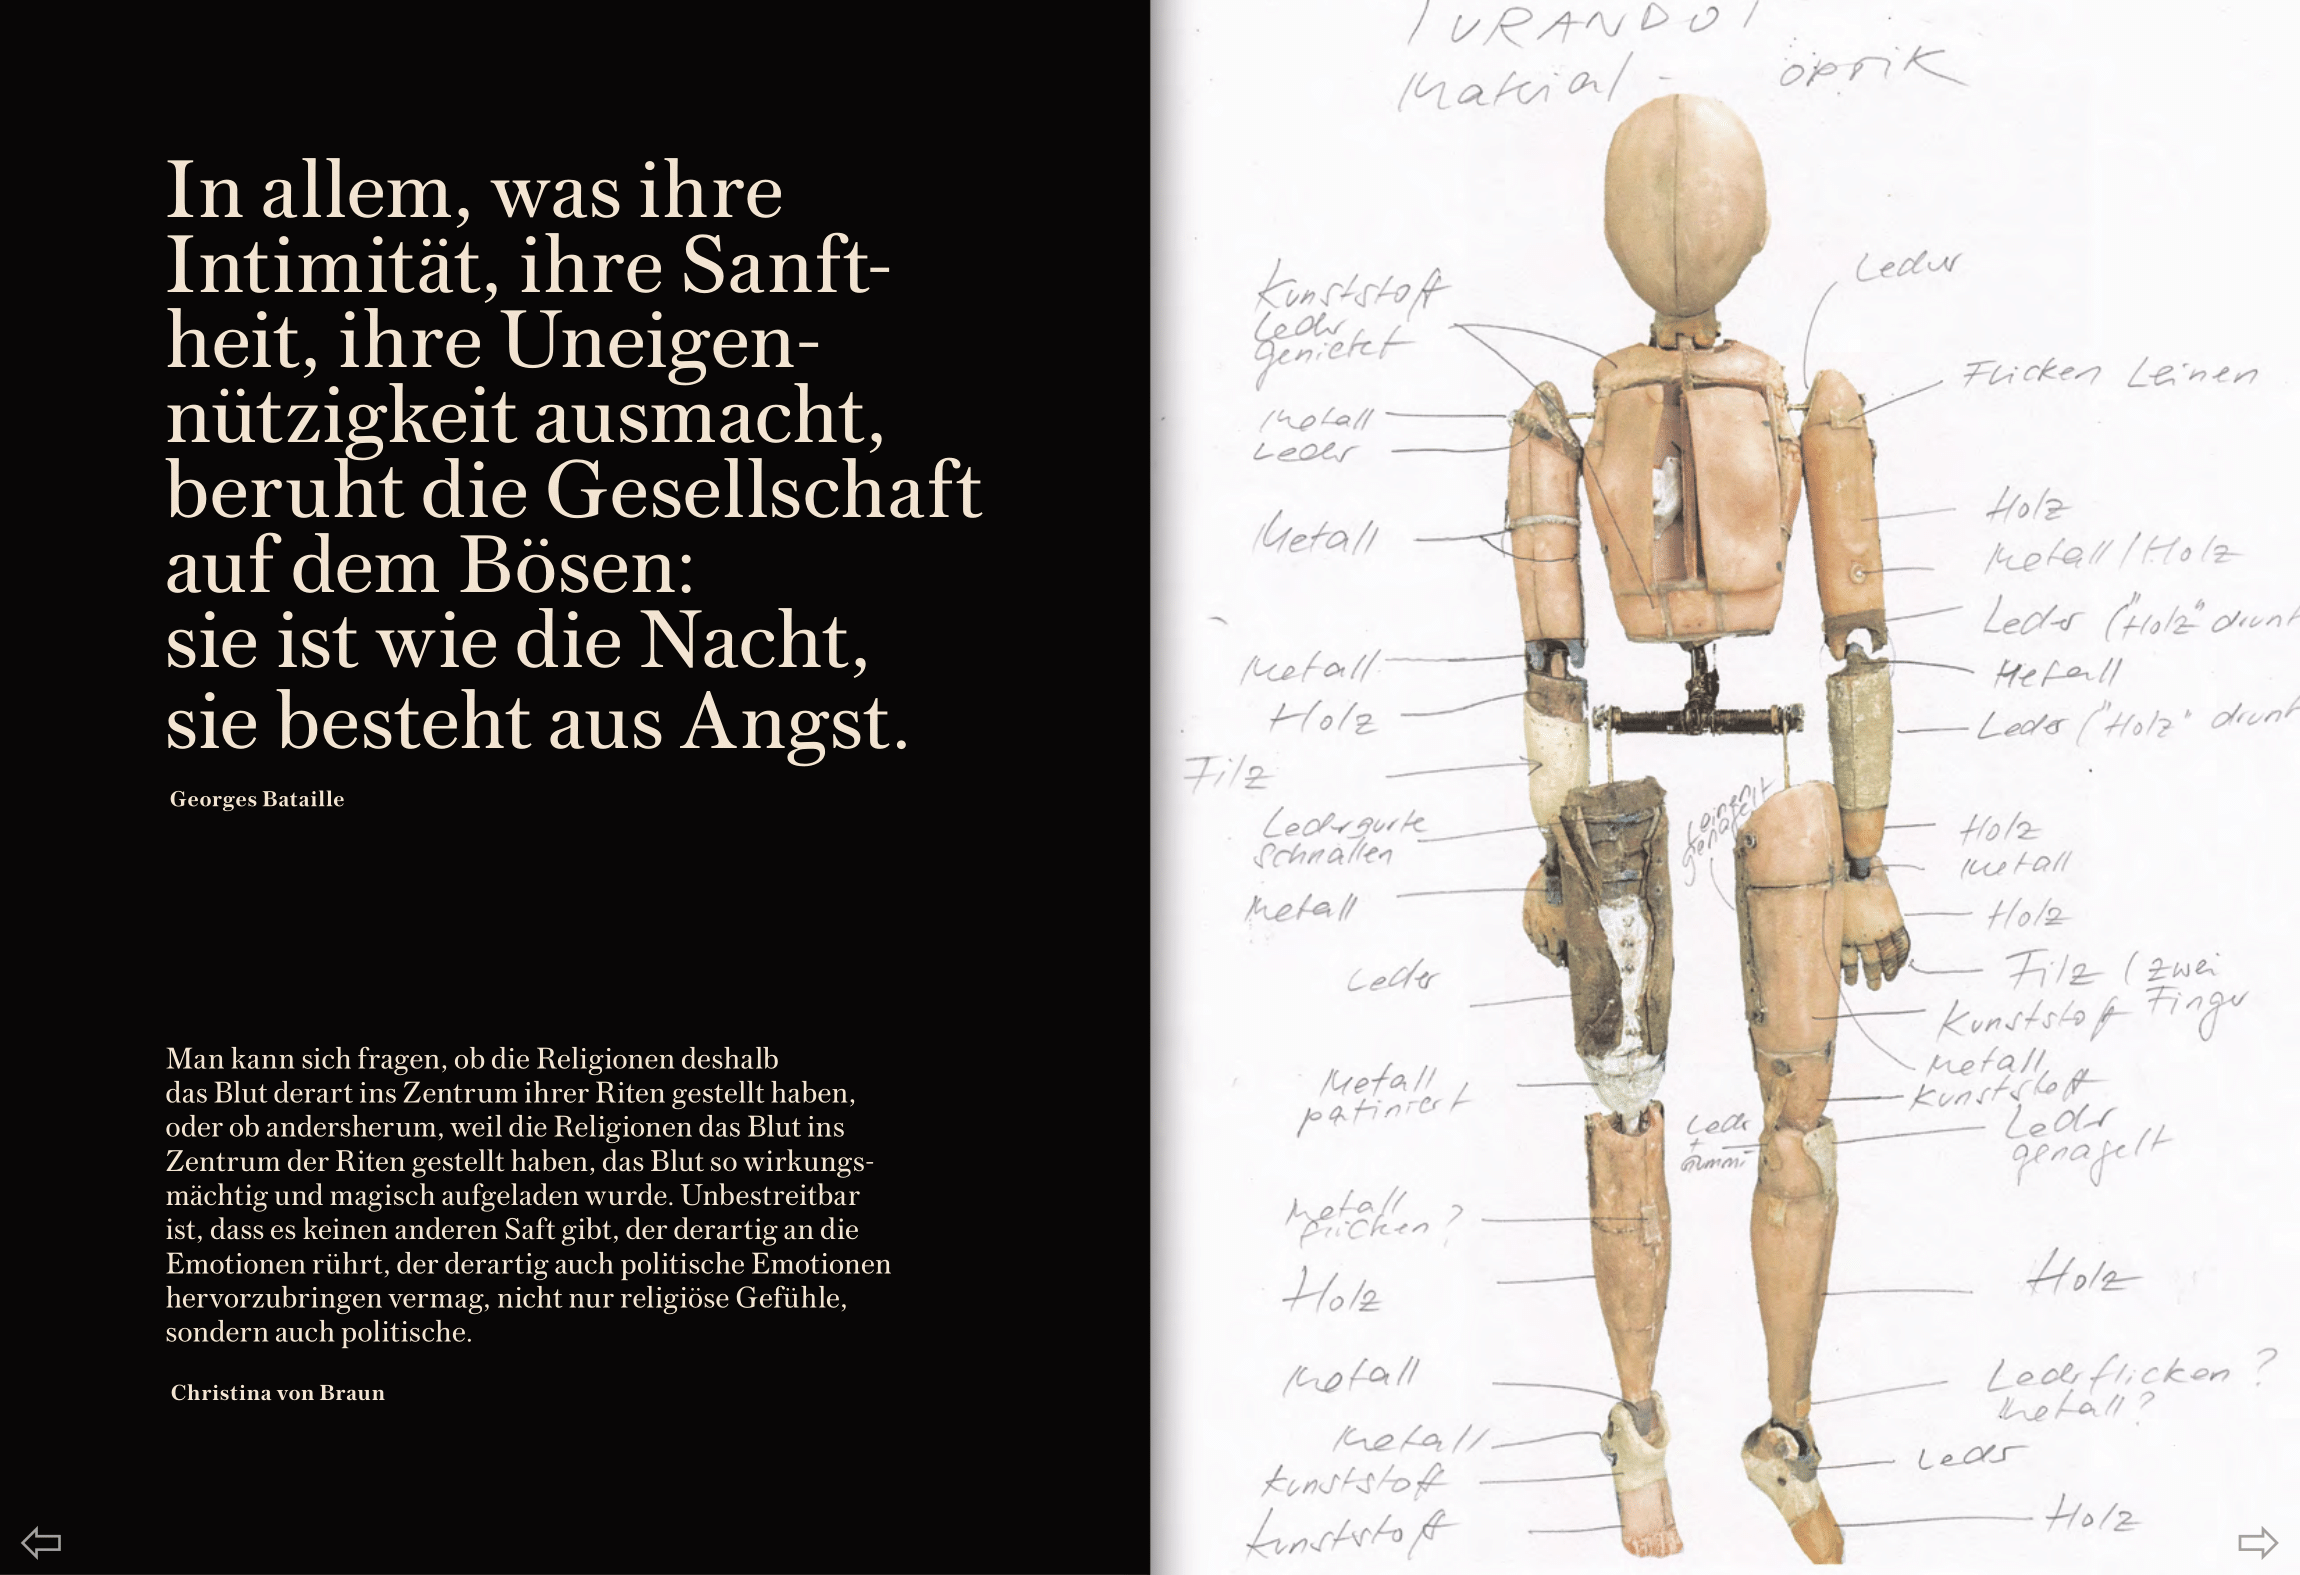 In allem, was ihre
Intimität, ihre Sanft-
heit, ihre Uneigen-
nützigkeit ausmacht,
beruht die Gesellschaft
auf dem Bösen:
sie ist wie die Nacht,
sie besteht aus Angst.
Georges Bataille
Man kann sich fragen, ob die Religionen deshalb
das Blut derart ins Zentrum ihrer Riten gestellt haben,
oder ob andersherum, weil die Religionen das Blut ins
Zentrum der Riten gestellt haben, das Blut so wirkungs-
mächtig und magisch aufgeladen wurde. Unbestreitbar
ist, dass es keinen anderen Saft gibt, der derartig an die
Emotionen rührt, der derartig auch politische Emotionen
hervorzubringen vermag, nicht nur religiöse Gefühle,
sondern auch politische.
Christina von Braun
TURANDOT
Material - optik
Kunststoff
Leder
genietet
Metall
Leder
Metall
Metall
Holz
Filz
Ledergurte
Schnallen
Metall
Leder
Metall
patiniert
Metall
flicken?
Holz
Metall
Metall
Kunststoff
Kunststoff
genagelt
Leder
+
Gummi
Leder
Flicken Leinen
Holz
Metall/Holz
Leder ("Holz" drunt
Metall
Leder ("Holz" drunt
Holz
Metall
Holz
Filz (zwei
Finger
Kunststoff
Metall
Kunststoff
Leder
genagelt
Holz
Lederflicken?
Metall?
Leder
Holz